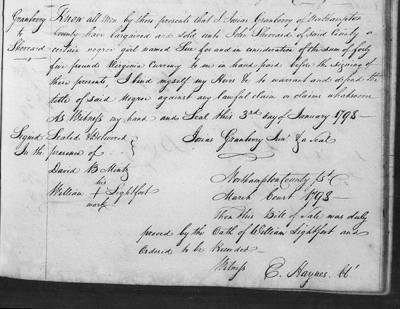 Granberry Know all Men by these presents that I Josias Granberry of Northampton
to County have bargained and sold unto John Sherrard of said County a
Sherrard certain negroe girl named Sue for and in consideration of the sum of forty
five pounds Virginia Currency to me in hand paid before the signing of
these presents, I bind myself my Heirs &c to warrant and defend the
title of said Negroe against any lawful claim or claims whatsoever
As Witness my hand and Seal this 3rd day of January 1793—
Signed Sealed & Delivered Josias Granberry Senr & a Seal
In the presence of
David B Mintz
his
William + Lightfoot
mark
Northampton County Sct
March Court 1793—
Then this Bill of Sale was duly
proved by the Oath of William Lightfoot and
Ordered to be Recorded—
Witness E. Haynes Clk